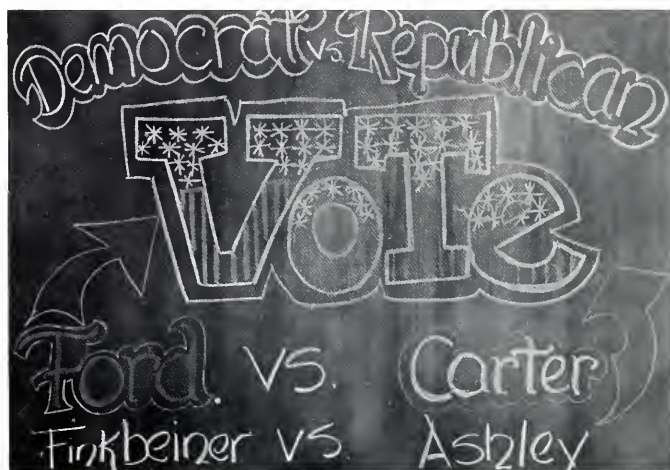 Democrat vs. Republican
Vote
Ford. VS. Carter
Finkbeiner VS. Ashley